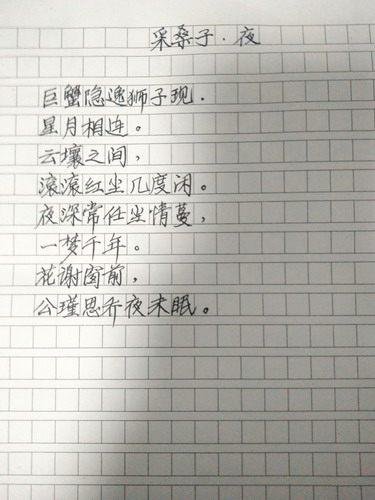 采桑子·夜
巨蟹隐逸狮子现.
星月相连。
云壤之间,
滚滚红尘几度闲。
夜深常任尘情蔓,
一梦千年。
花谢窗前,
公瑾思乔夜未眠。